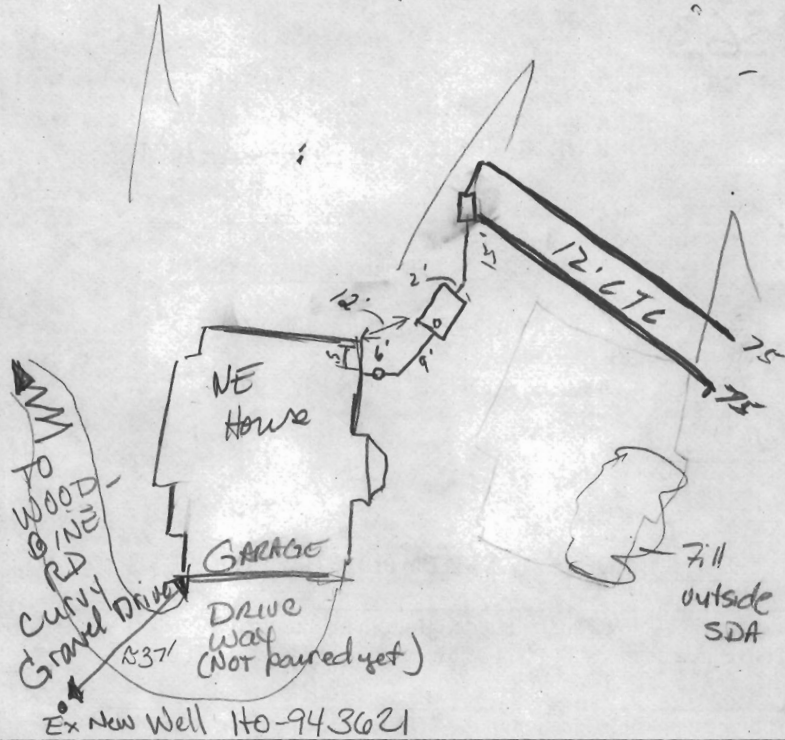 12' C TC
75
75
15'
2'
12'
6'
5'
9'
NE
House
TO
WOOD-
BINE
RD
Curvy
Gravel Drive
GARAGE
DRIVE
WAY
(Not poured yet)
Fill
outside
SDA
Ex New Well HO-943621